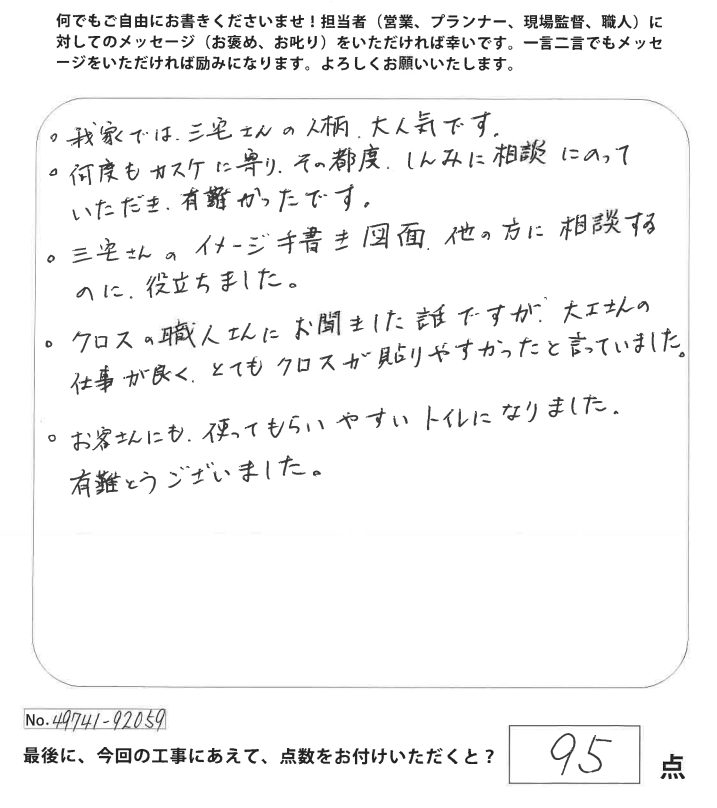 何でもご自由にお書きくださいませ！担当者（営業、プランナー、現場監督、職人）に
対してのメッセージ（お褒め、お叱り）をいただければ幸いです。一言二言でもメッセ
ージをいただければ励みになります。よろしくお願いいたします。
。我家では、三宅さんの人柄、大人気です。
。何度もカスケに寄り、その都度、しんみに相談にのって
いただき、有難かったです。
。三宅さんのイメージ手書き図面、他の方に相談する
のに、役立ちました。
。クロスの職人さんにお聞きした話ですが、大工さんの
仕事が良く、とてもクロスが貼りやすかったと言っていました。
。お客さんにも、使ってもらいやすいトイレになりました。
有難とうございました。
No.49741-92059
最後に、今回の工事にあえて、点数をお付けいただくと？ 95 点